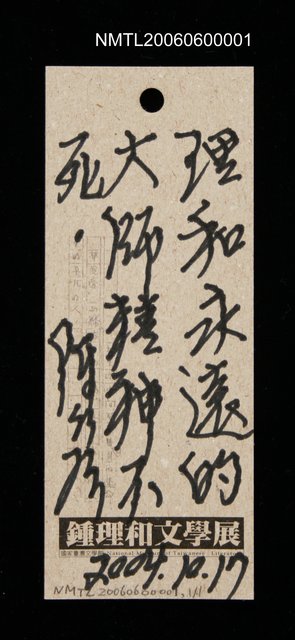 NMTL20060600001
理和永遠的
大師精神不
死．
鍾理和文學展
國家臺灣文學館 National Museum of Taiwanese Literature
2004.10.17
NMTL20060600001,1/1